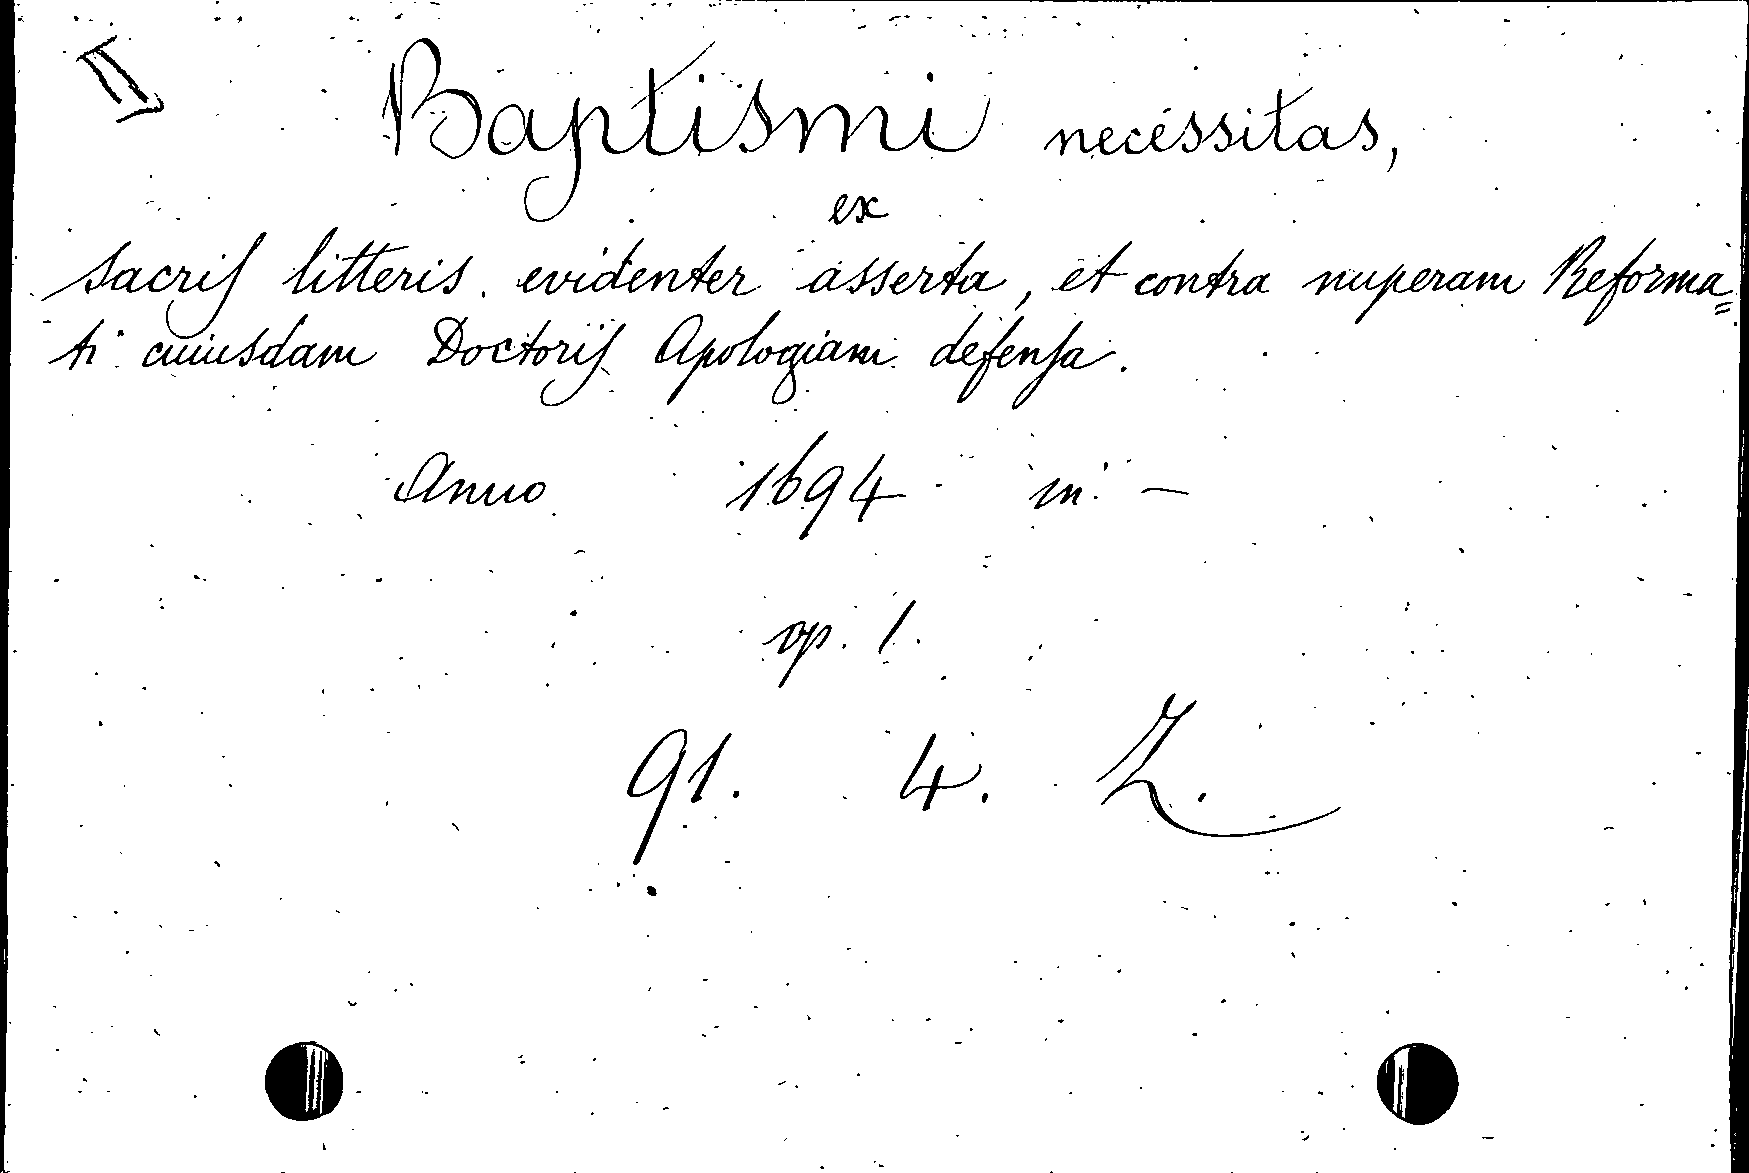 II
Baptismi necessitas,
ex
sacris litteris evidenter asserta, et contra nuperam Reforma=
ti cuiusdam Doctoris Apologiam defensa.
Anno 1694 in —
op. 1.
91. 4. Z.